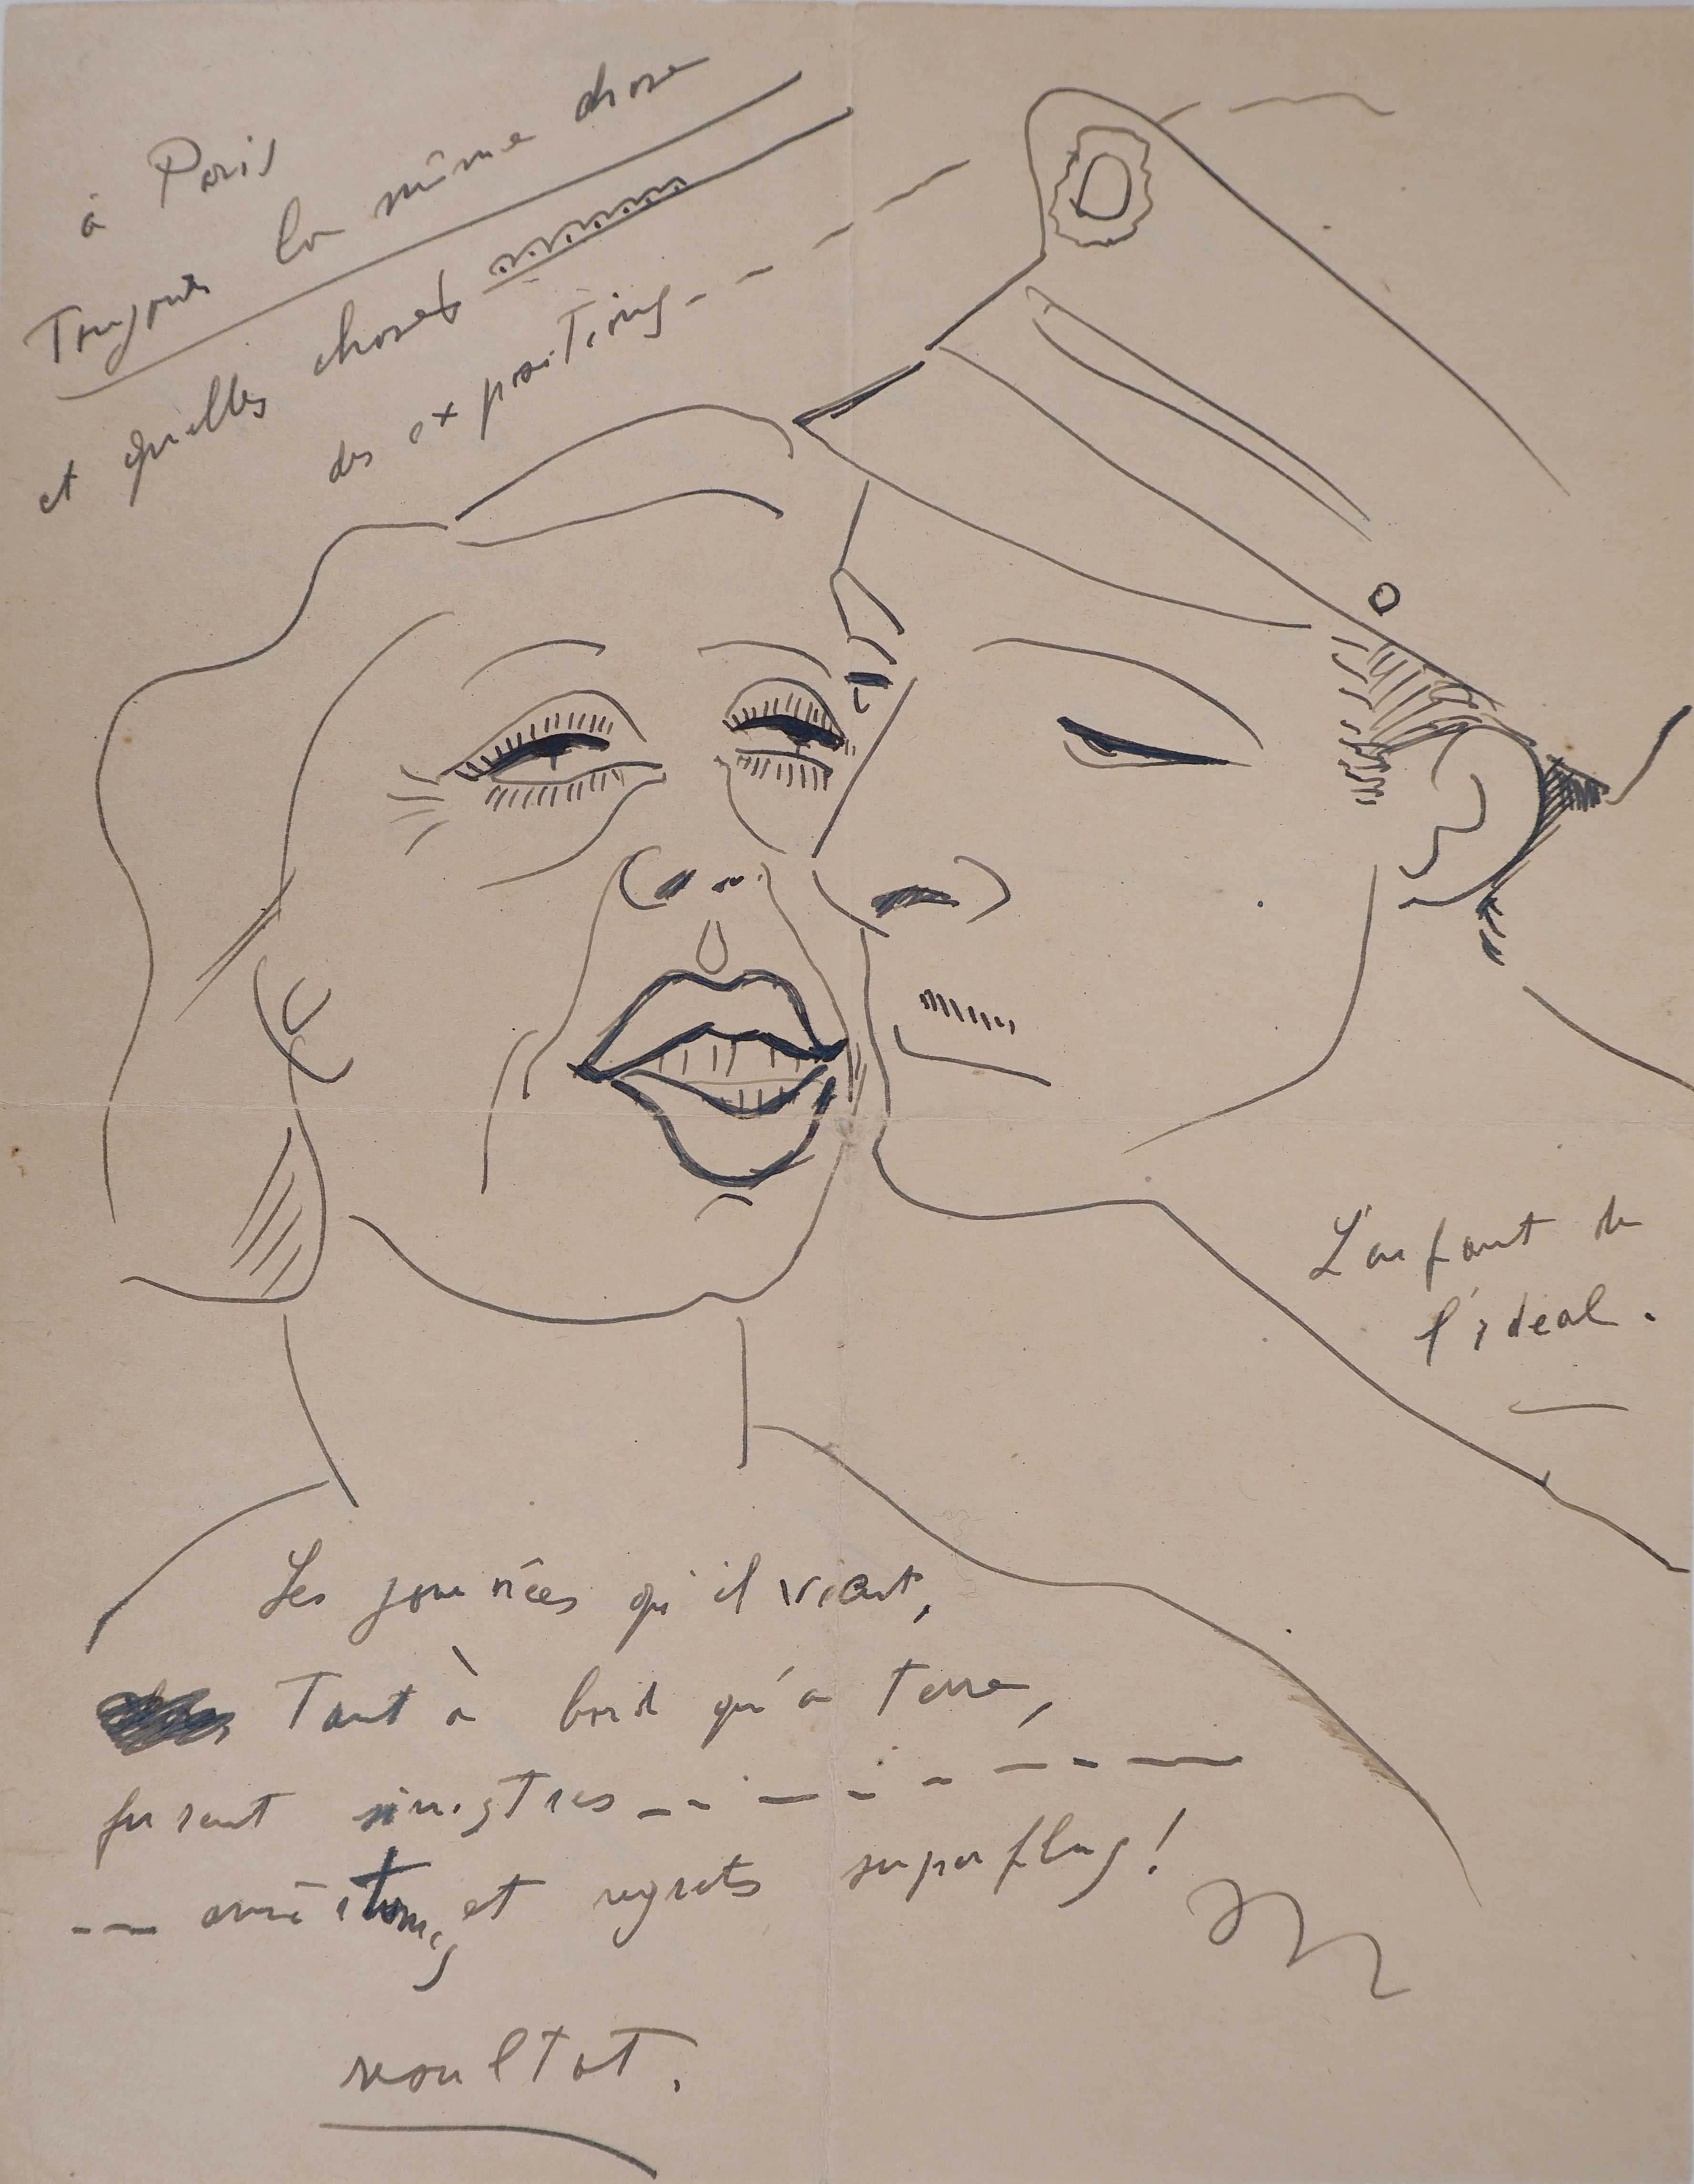 à Paris
Toujours la même chose
et quelles choses
des expositions - -
L'enfant de
l'idéal.
Les journées qu'il vient,
Tant à bord qu'a terre,
furent sinistres - - - - - - - -
- - et regrets superflus!
resultat.